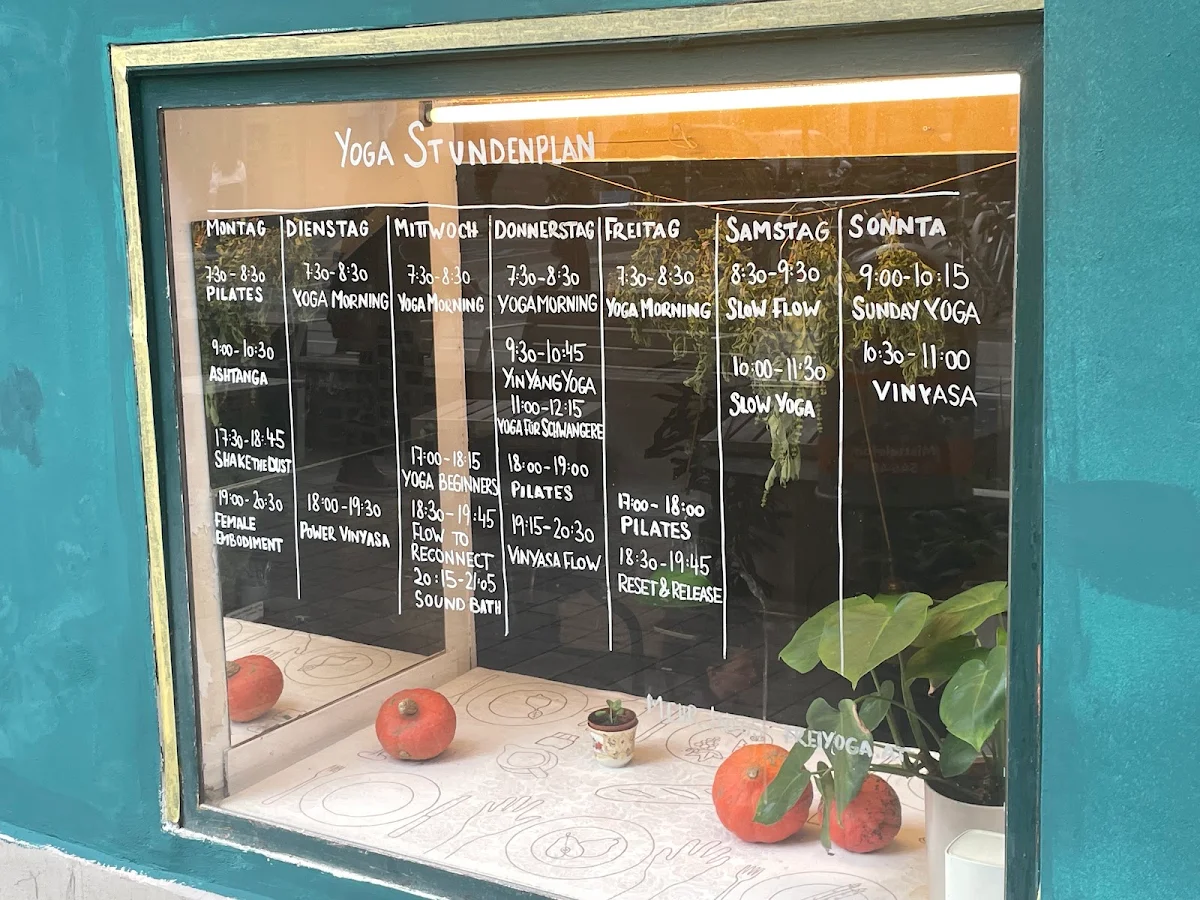 YOGA STUNDENPLAN
MONTAG
7:30-8:30
PILATES
9:00-10:30
ASHTANGA
17:30-18:45
SHAKE THE DUST
19:00-20:30
FEMALE
EMBODIMENT
DIENSTAG
7:30-8:30
YOGA MORNING
18:00-19:30
POWER VINYASA
MITTWOCH
7:30-8:30
YOGA MORNING
17:00-18:15
YOGA BEGINNERS
18:30-19:45
FLOW TO
RECONNECT
20:15-21:05
SOUND BATH
DONNERSTAG
7:30-8:30
YOGA MORNING
9:30-10:45
YIN YANG YOGA
11:00-12:15
YOGA FÜR SCHWANGERE
18:00-19:00
PILATES
19:15-20:30
VINYASA FLOW
FREITAG
7:30-8:30
YOGA MORNING
17:00-18:00
PILATES
18:30-19:45
RESET & RELEASE
SAMSTAG
8:30-9:30
SLOW FLOW
10:00-11:30
SLOW YOGA
SONNTA
9:00-10:15
SUNDAY YOGA
10:30-11:00
VINYASA